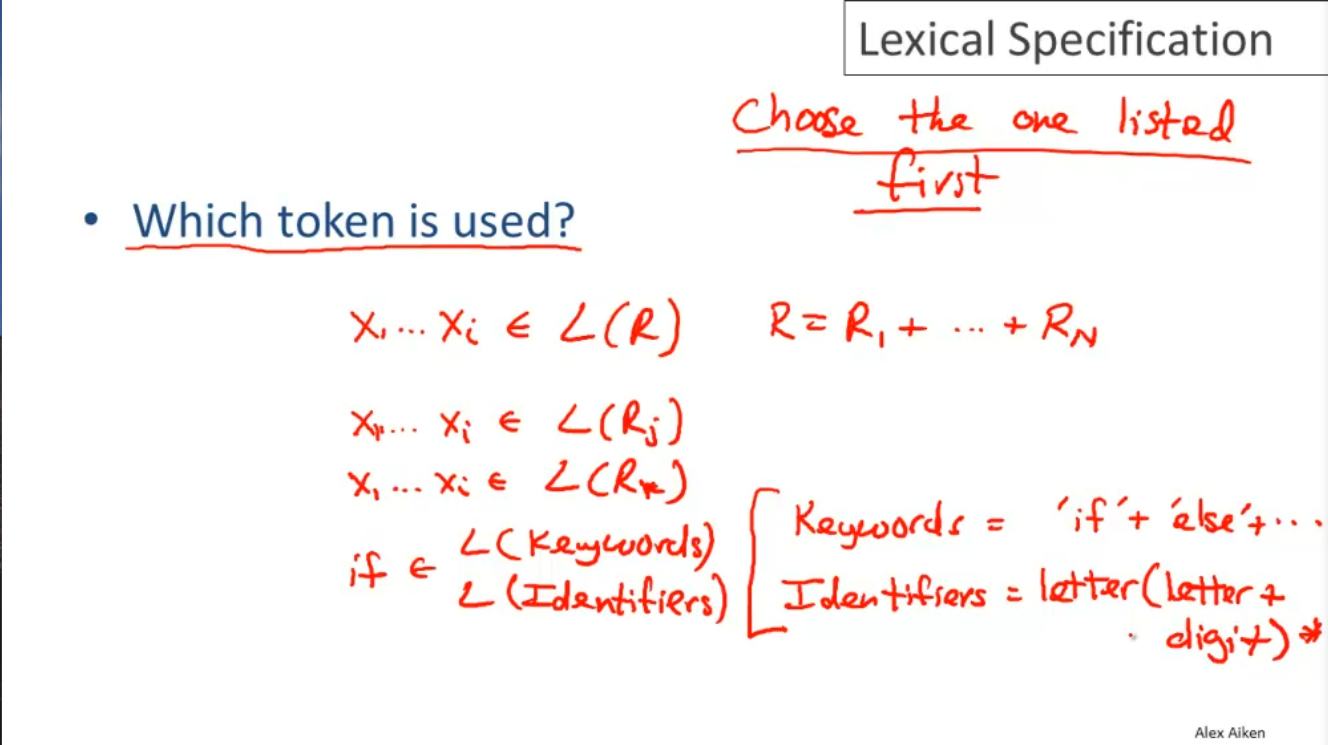 Lexical Specification
Choose the one listed
first
• Which token is used?
x₁ ... xᵢ ∈ L(R)    R = R₁ + ... + R_N
x₁ ... xᵢ ∈ L(Rⱼ)
x₁ ... xᵢ ∈ L(Rₖ)
if ∈ L(Keywords)    Keywords = 'if' + 'else' + ...
L(Identifiers)    Identifiers = letter(letter +
digit)*
Alex Aiken